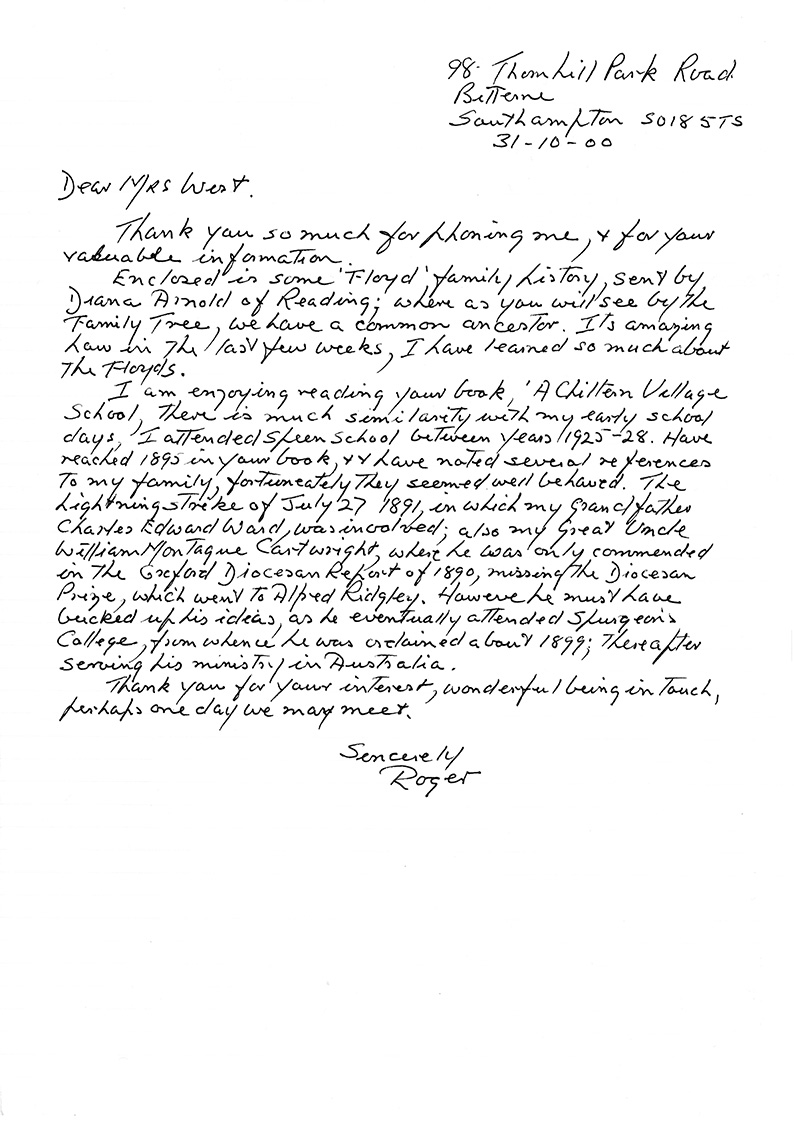 98. Thornhill Park Road
Bitterne
Southampton SO18 5TS
31-10-00
Dear Mrs West.
Thank you so much for phoning me, & for your
valuable information.
Enclosed is some 'Floyd' family history, sent by
Diana Arnold of Reading; where as you will see by the
Family Tree, we have a common ancestor. It's amazing
how in the last few weeks, I have learned so much about
the Floyds.
I am enjoying reading your book, 'A Chiltern Village
School, there is much similarity with my early school
days, I attended Speen School between years 1925-28. Have
reached 1895 in your book, & have noted several references
to my family, fortuneately they seemed well behaved. The
Lightning strike of July 27 1891, in which my Grandfather
Charles Edward Ward, was involved; also my Great Uncle
William Montague Cartwright, where he was only commended
in the Oxford Diocesan Report of 1890, missing the Diocesan
Prize, which went to Alfred Ridgley. Howeve he must have
bucked up his ideas, as he eventually attended Spurgeon's
College, from whence he was ordained about 1899; thereafter
serving his ministry in Australia.
Thank you for your interest, wonderful being in touch,
perhaps one day we may meet.
Sencerely
Roger